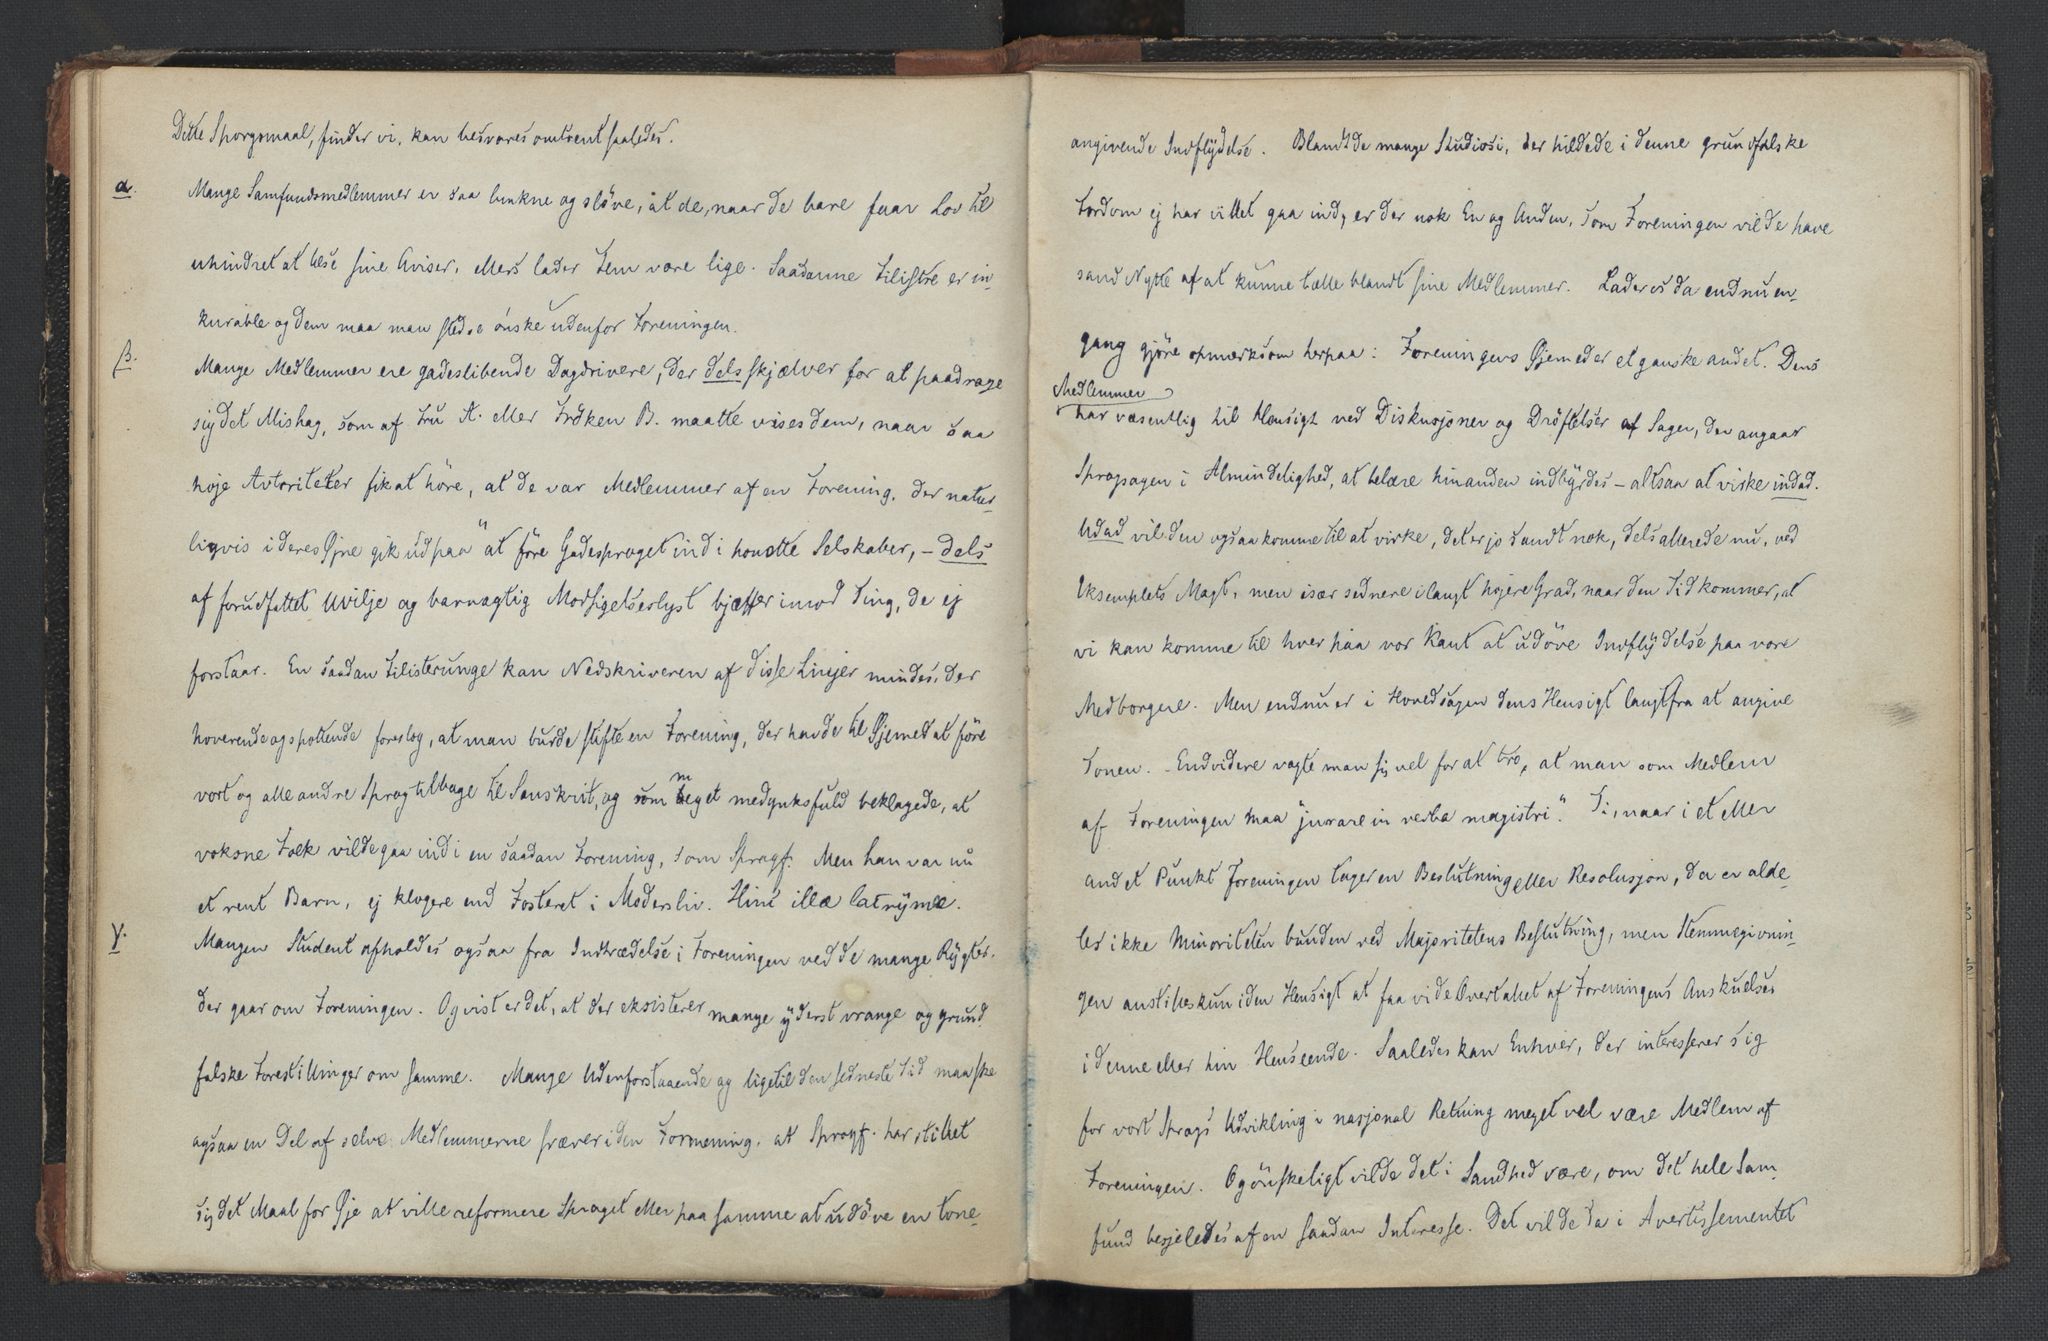 Dette Sporgsmaal, finder vi, kan besvares omtrent saaledes.
α. Mange Samfundsmedlemmer er saa lunkne og slöve, at de, naar de bare faar Lov til
uhindret at læse sine Aviser, ellers lader dem være lige. Saadanne Filistre er in-
kurable og dem maa man stedse önske udenfor Foreningen.
β. Mange Medlemmer ere gadeslibende Dagdrivere, der dels skjælver for at paadrage
sig det Mishag, som af Fru A. eller Fröken B. maatte vises dem, naar saa
høje Avtoriteter fik at höre, at de var Medlemmer af en Forening, der natur-
ligvis i deres Øjne gik ud paa "at före Gadesproget ind i honette Selskaber, – dels
af forudfattet Uvilje og barnagtig Modsigelseslyst bjæffer imod Ting, de ej
forstaar. En saadan Filisterunge kan Nedskriveren af disse Linjer mindes, der
hoverende og spottende foreslog, at man burde stifte en Forening, der havde til Øjemed at före
vort og alle andre Sprog tilbage til Sanskrit, og som meget medynksfuld beklagede, at
voksne Folk vilde gaa ind i en saadan Forening, som Sprogf. Men han var nu
et rent Barn, ej klogere end Fosteret i Modersliv. Hinc illæ lacrymæ.
γ. Mangen Student afholdes ogsaa fra Indtrædelse i Foreningen ved de mange Rygter,
der gaar om Foreningen. Og vist er det, at der eksisterer mange yderst vrange og grund-
falske Forestillinger om samme. Mange Udenforstaaende og ligetil den sedneste Tid maaske
ogsaa en Del af selve Medlemmerne svæver i den Formening, at Sprogf. har stillet
sig det Maal for Øje at ville reformere Sproget eller paa samme at udöve en tone-
angivende Indflydelse. Blandt de mange Studiosi, der hildede i denne grundfalske
Fordom ej har villet gaa ind, er der nok En og Anden, som Foreningen vilde have
sand Nytte af at kunne tælle blandt sine Medlemmer. Lader os da endnu en-
gang gjöre opmærksom herpaa: Foreningens Øjemed er et ganske andet. Dens
Medlemmer
har væsentlig til Hensigt ved Diskusjoner og Dröftelser af Sager, der angaar
Sprogsagen i Almindelighed, at belære hinanden indbyrdes – altsaa at virke indad.
Udad vil den ogsaa komme til at virke, det er jo sandt nok, dels allerede nu, ved
Eksemplets Magt, men især sednere i langt højere Grad, naar den Tid kommer, at
vi kan komme til hver paa vor Kant at udöve Indflydelse paa vore
Medborgere. Men endnu er i Hovedsagen dens Hensigt langtfra at angive
Tonen. – Endvidere vogte man sig vel for at tro, at man som Medlem
af Foreningen maa "jurare in verba magistri". Ti, naar i et eller
andet Punkt Foreningen tager en Beslutning eller Resolusjon, da er alde-
les ikke Minoriteten bunden ved Majoritetens Beslutning, men Stemmegivnin-
gen anstilles kun i den Hensigt at faa vide Overtallet af Foreningens Anskuelser
i denne eller hin Henseende. Saaledes kan Enhver, der interesserer sig
for vort Sprogs Udvikling i nasjonal Retning meget vel være Medlem af
Foreningen. Og önskeligt vilde det i Sandhed være, om det hele Sam-
fund besjeledes af en saadan Interesse. Det vilde da i Avertissementet